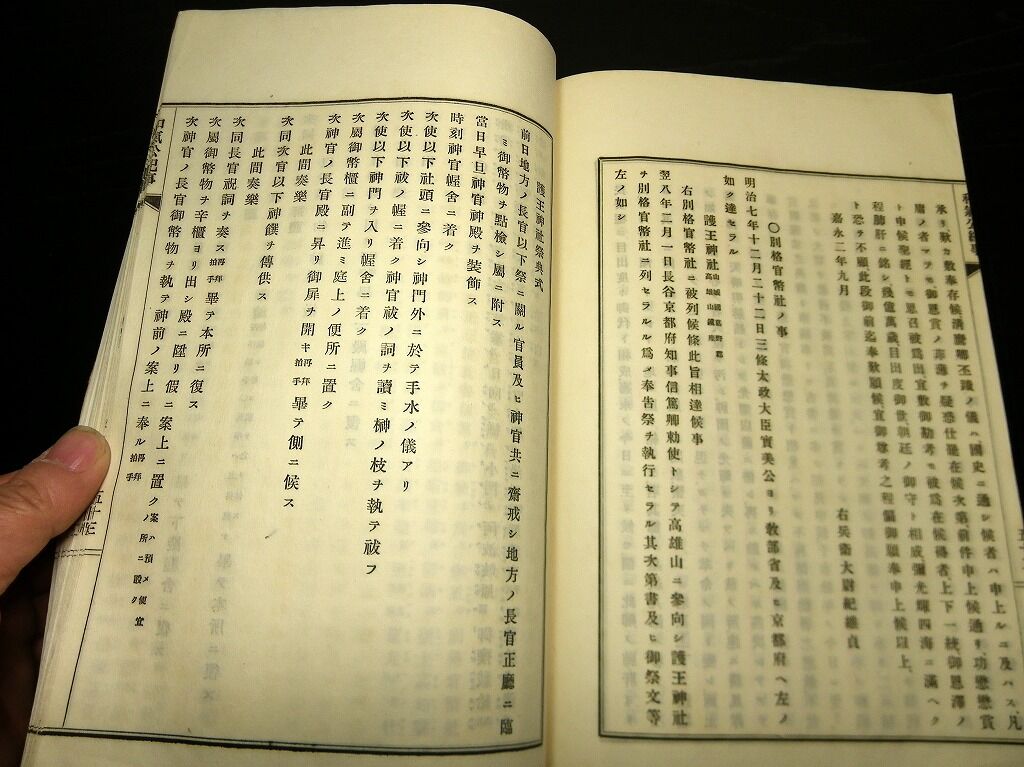 承リ歎カ敷奉存候清麿卿丕蹟ノ儀ハ國史ニ通シ候者ハ申上ルニ及バス、凡
庸ノ者マテモ御恩賞ノ菲薄ヲ疑惑仕罷在候次第前件申上候通リ、功懋懋賞
ト申候聖經トモ思召被爲出宜敷御勘考モ被爲在候得者上下一統、御恩澤ノ
程肺肝ニ銘シ幾億萬歲、目出度御世朝廷ノ御守ト相成彌光耀四海ニ滿ヘク
ト恐ヲ不顧此段御前迄奉歎願候宜御尊考之程偏御願奉申上候以上、
嘉永二年九月　右兵衞大尉紀維貞
〇別格官幣社ノ事
明治七年十二月二十二日三條太政大臣實美公ヨリ教部省及ヒ京都府ヘ左ノ
如ク達セラル
護王神社 山城國葛野郡高雄山鎭座
右別格官幣社ニ被列候條此旨相達候事
翌八年二月一日長谷京都府知事信篤卿勅使トシテ高雄山ニ參向シ護王神社
ヲ別格官幣社ニ列セラルヽ爲メ奉告祭ヲ執行セラル其次第書及ヒ御祭文等
左ノ如シ
護王神社祭典式
前日地方ノ長官以下祭ニ關ル官員及ヒ神官共ニ齋戒シ地方ノ長官正廳ニ臨
ミ御幣物ヲ點檢シ屬ニ附ス
當日早旦神官神殿ヲ裝飾ス
時刻神官幄舍ニ着ク
次使以下社頭ニ參向シ神門外ニ於テ手水ノ儀アリ
次使以下祓ノ幄ニ着ク神官祓ノ詞ヲ讀ミ榊ノ枝ヲ執テ祓フ
次使以下神門ヲ入リ幄舍ニ着ク
次屬御幣櫃ニ副テ進ミ庭上ノ便所ニ置ク
次神官ノ長官殿ニ昇リ御扉ヲ開キ 再拜拍手 畢テ側ニ候ス
此間奏樂
次同次官以下神饌ヲ傳供ス
此間奏樂
次同長官祝詞ヲ奏ス 再拜拍手 畢テ本所ニ復ス
次屬御幣物ヲ辛櫃ヨリ出シ殿ニ陞リ假ニ案上ニ置ク 案ハ預メ便宜ノ所ニ設ク
次神官ノ長官御幣物ヲ執テ神前ノ案上ニ奉ル 再拜拍手
五十三